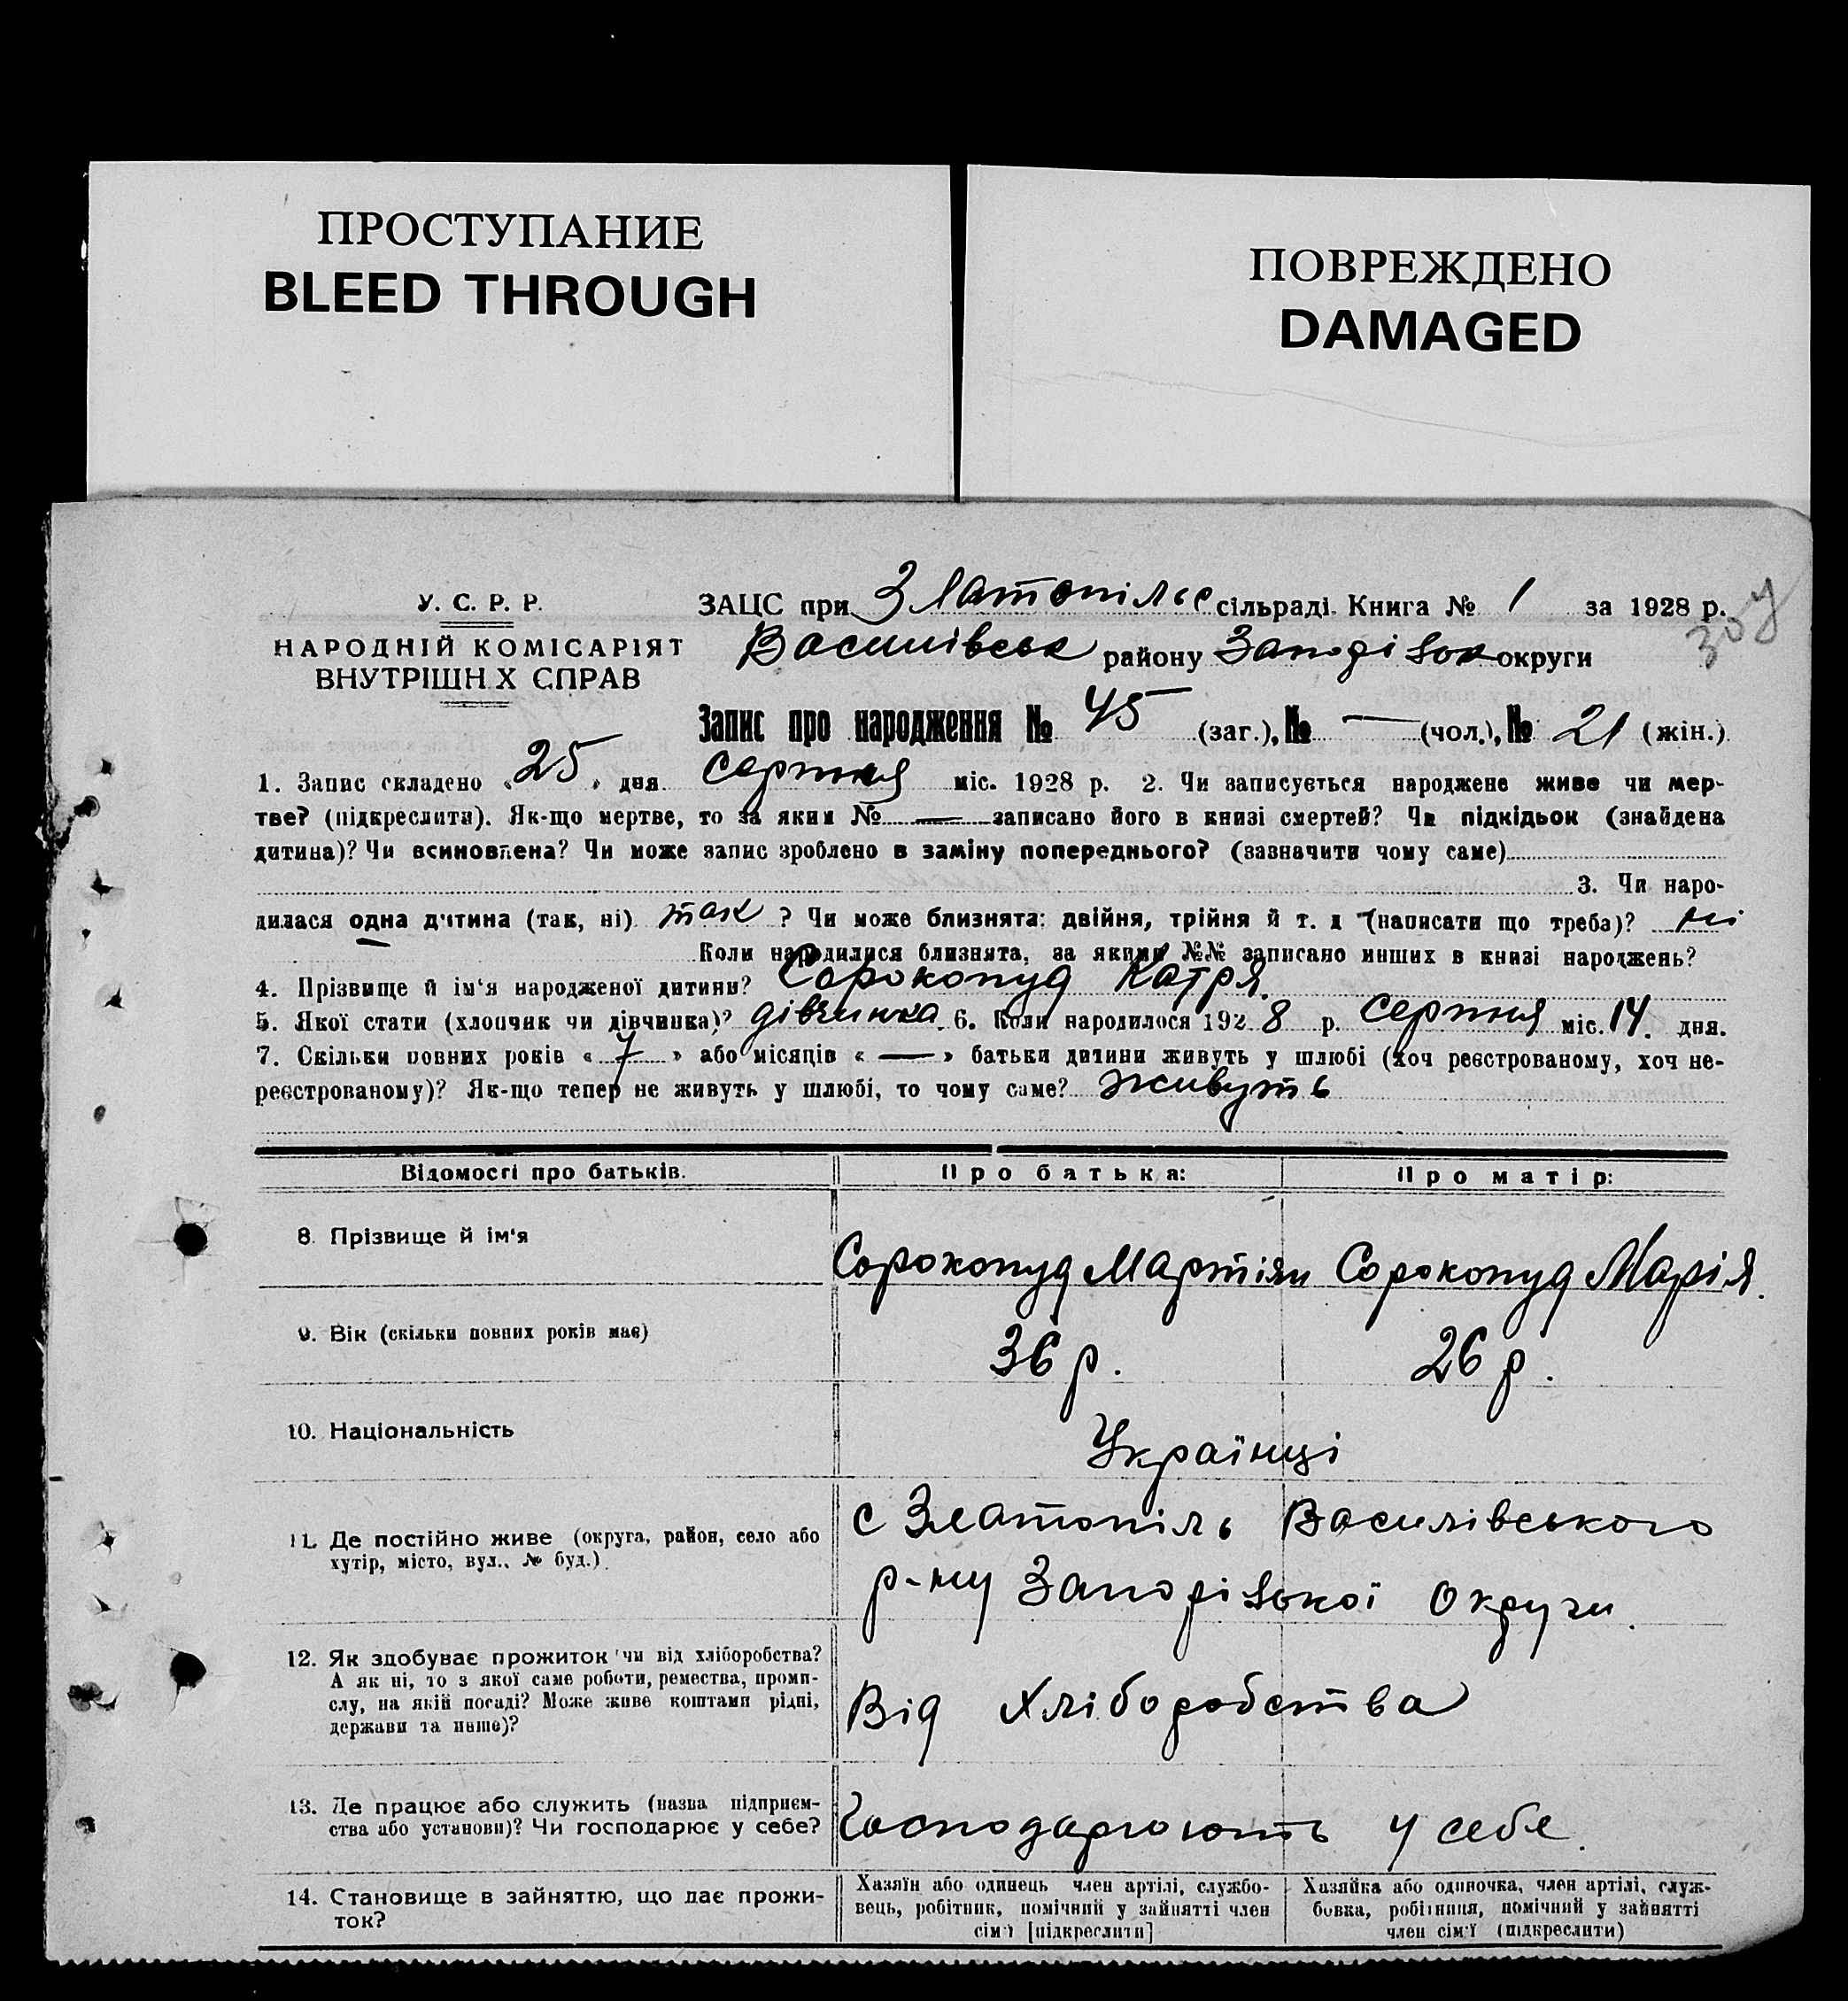 ПРОСТУПАНИЕ
BLEED THROUGH
ПОВРЕЖДЕНО
DAMAGED
У. С. Р. Р.
НАРОДНІЙ КОМІСАРІЯТ
ВНУТРІШН Х СПРАВ
ЗАЦС при Златопільс сільраді. Книга № 1 за 1928 р.
Василівськ району Запорізьк округи
Запис про народження № 45 (заг.), № — (чол.), № 21 (жін.)
1. Запис складено « 25 » дня серпня міс. 1928 р. 2. Чи записується народжене живе чи мер-
тве? (підкреслити). Як-що мертве, то за яким № — записано його в книзі смертей? Чи підкідьок (знайдена
дитина)? Чи всиновлена? Чи може запис зроблено в заміну попереднього? (зазначити чому саме)
3. Чи наро-
дилася одна дитина (так, ні) так ? Чи може близнята: двійня, трійня й т. д (написати що треба)? ні
Коли народилися близнята, за якими №№ записано инших в книзі народжень?
4. Прізвище й ім‘я народженої дитини? Сорокопуд Катря.
5. Якої стати (хлопчик чи дівчинка)? дівчинка. 6. Коли народилося 192 8 р. серпня міс. 14. дня.
7. Скільки повних років « 7 » або місяців « — » батьки дитини живуть у шлюбі (хоч реєстрованому, хоч не-
реєстрованому)? Як-що тепер не живуть у шлюбі, то чому саме? живуть
Відомості про батьків. Про батька: Про матір:
8. Прізвище й ім‘я Сорокопуд Мартіян Сорокопуд Марія.
9. Вік (скільки повних років має) 36 р. 26 р.
10. Національність Українці
11. Де постійно живе (округа, район, село або
хутір, місто, вул., № буд.).
с Златопіль Василівського
р-ну Запорізької Округи.
12. Як здобуває прожиток чи від хліборобства?
А як ні, то з якої саме роботи, ремества, проми-
слу, на якій посаді? Може живе коштами рідні,
держави та инше)?
Від Хліборобства
13. Де працює або служить (назва підприєм-
ства або установи)? Чи господарює у себе?
Господарюють у себе.
14. Становище в зайняттю, що дає прожи-
ток?
Хазяїн або одинець член артілі, службо-
вець, робітник, помічний у зайнятті член
сім‘ї [підкреслити]
Хазяйка або одиночка, член артілі, служ-
бовка, робітниця, помічний у зайнятті
член сім‘ї (підкреслити)